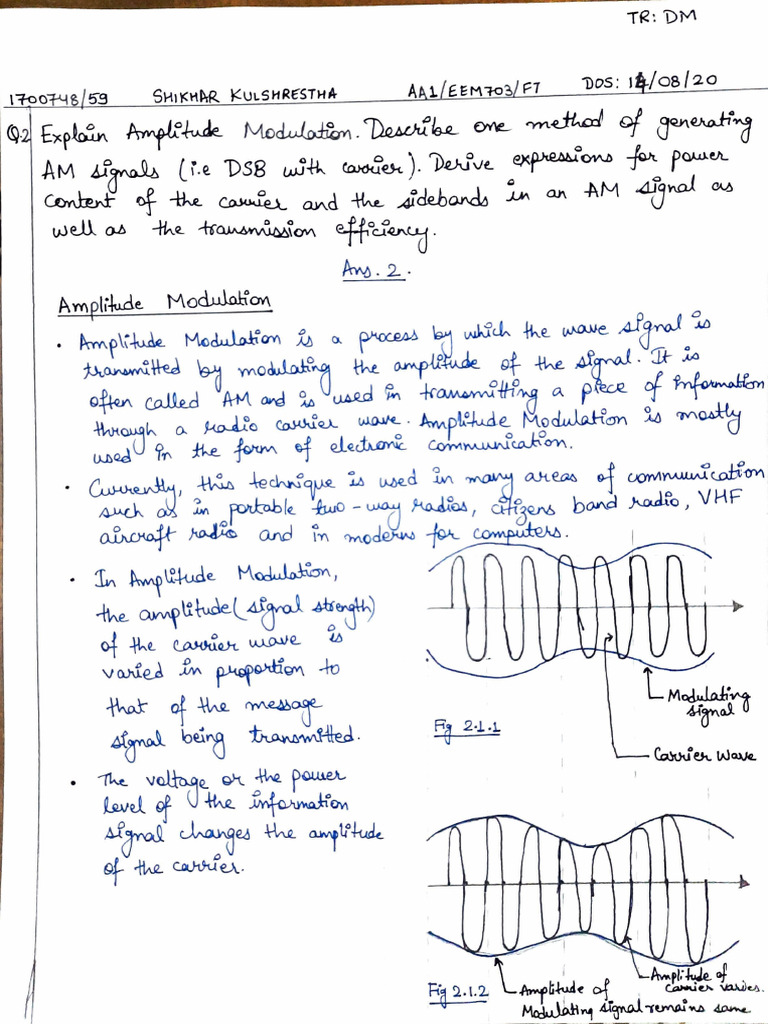 TR: DM
1700748/59 SHIKHAR KULSHRESTHA AA1/EEM703/FT DOS: 14/08/20
Q.2 Explain Amplitude Modulation. Describe one method of generating
AM signals (i.e DSB with carrier). Derive expressions for power
content of the carrier and the sidebands in an AM signal as
well as the transmission efficiency.
Ans. 2.
Amplitude Modulation
• Amplitude Modulation is a process by which the wave signal is
transmitted by modulating the amplitude of the signal. It is
often called AM and is used in transmitting a piece of information
through a radio carrier wave. Amplitude Modulation is mostly
used in the form of electronic communication.
• Currently, this technique is used in many areas of communication
such as in portable two-way radios, citizens band radio, VHF
aircraft radio and in modems for computers.
• In Amplitude Modulation,
the amplitude (signal strength)
of the carrier wave is
varied in proportion to
that of the message
signal being transmitted.
• The voltage or the power
level of the information
signal changes the amplitude
of the carrier.
Modulating
signal
Fig 2.1.1
Carrier Wave
Amplitude of
carrier varies.
Fig 2.1.2
Amplitude of
Modulating signal remains same